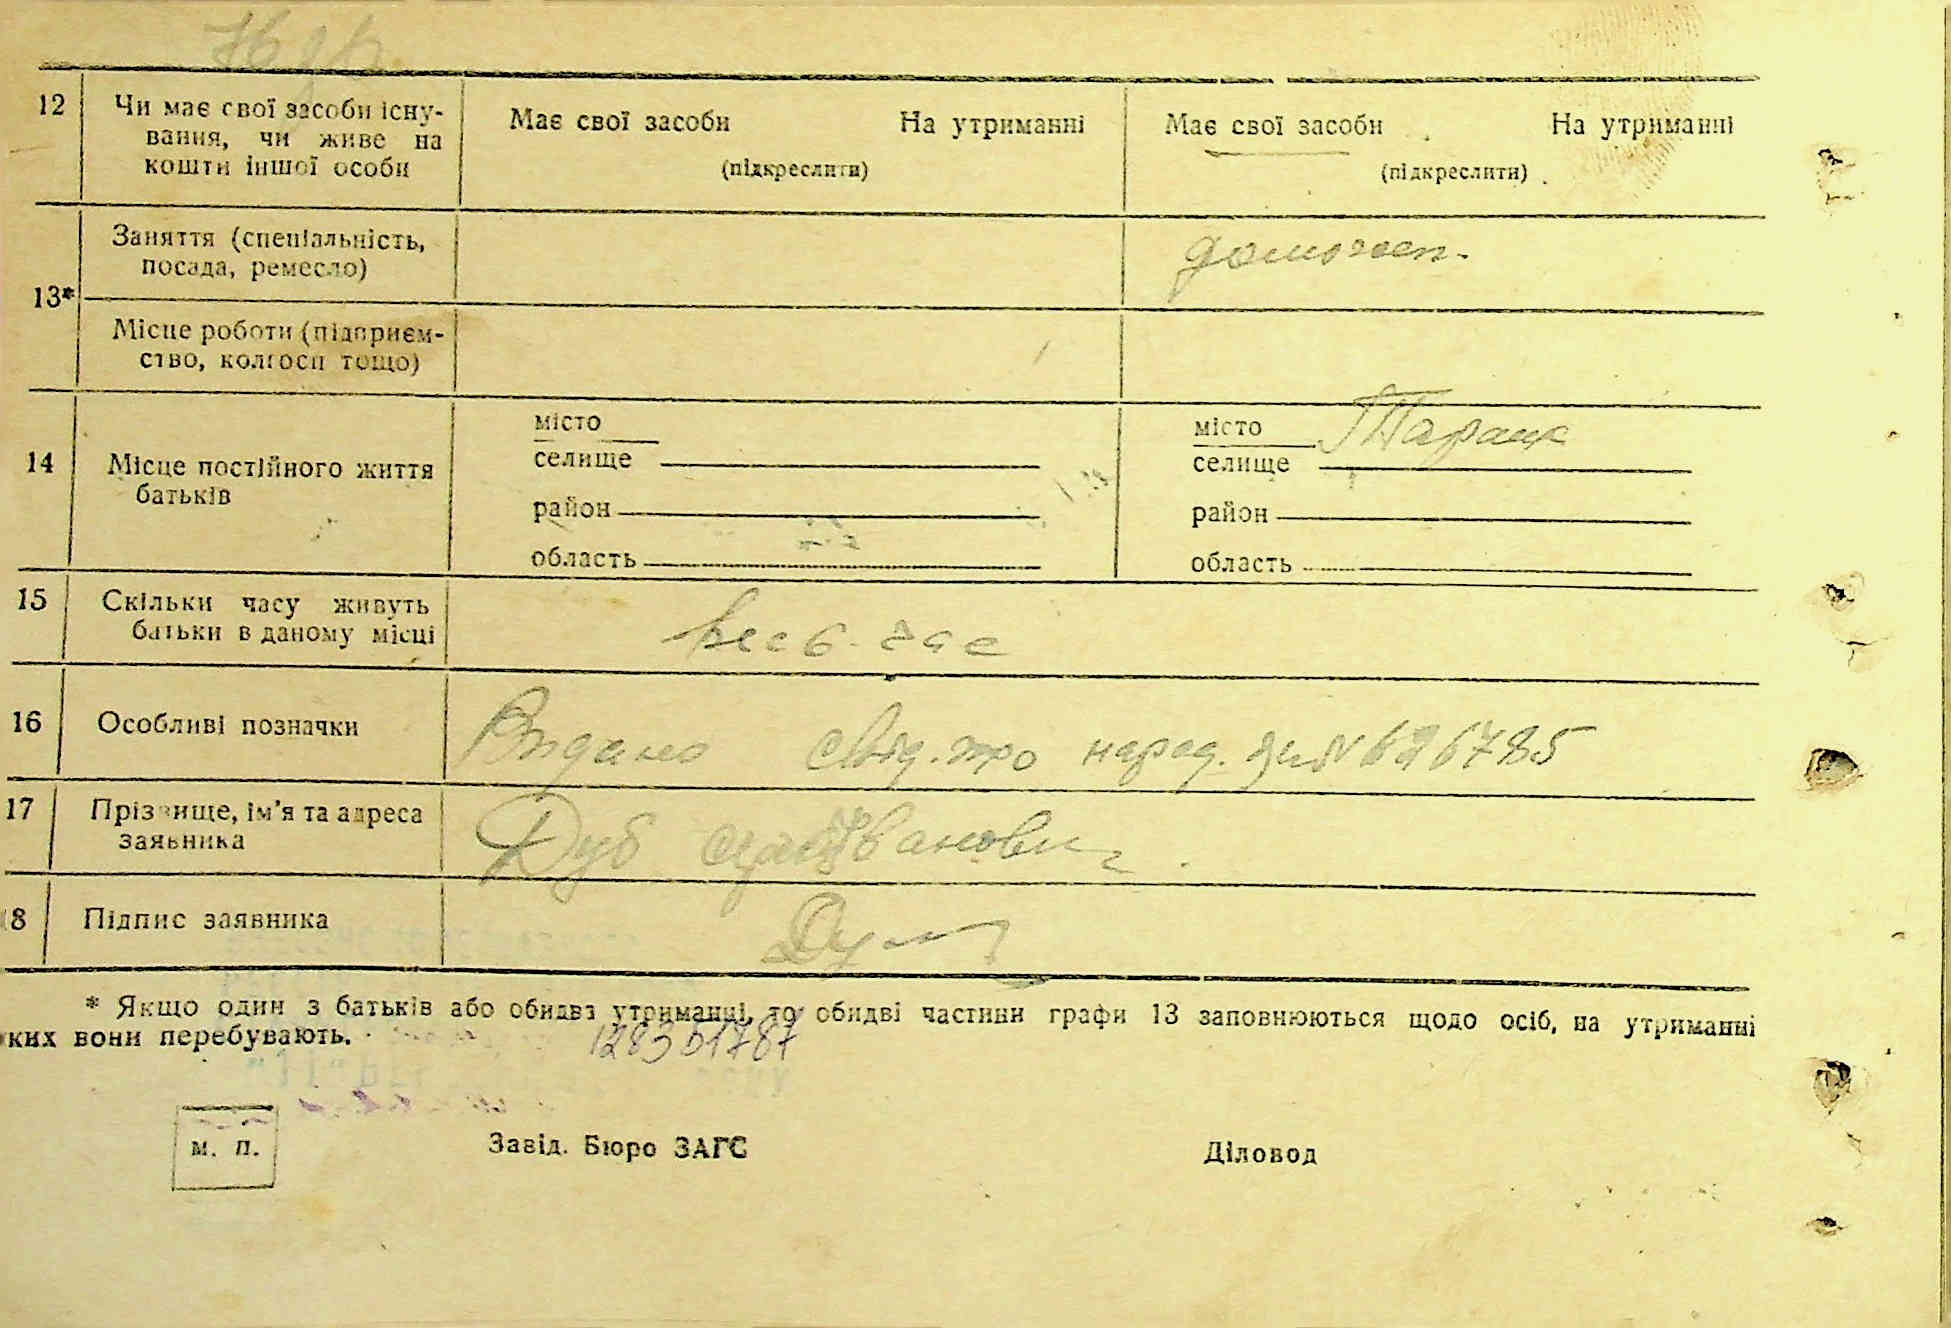 12 Чи має свої засоби існу- Має свої засоби На утриманні Має свої засоби На утриманні
вання, чи живе на
кошти іншої особи (підкреслити) (підкреслити)
Заняття (спеціальність, домогосп.
посада, ремесло)
13*
Місце роботи (підприєм-
ство, колгосп тощо)
місто місто
14 Місце постійного життя селище селище
батьків
район район
область область
15 Скільки часу живуть весь час
батьки в даному місці
16 Особливі позначки Видано свід. про народ. № 626785
17 Прізвище, ім'я та адреса Дуб Іванович
заявника
18 Підпис заявника
* Якщо один з батьків або обидва утриманні, то обидві частини графи 13 заповнюються щодо осіб, на утриманні
яких вони перебувають.
м. п. Завід. Бюро ЗАГС Діловод